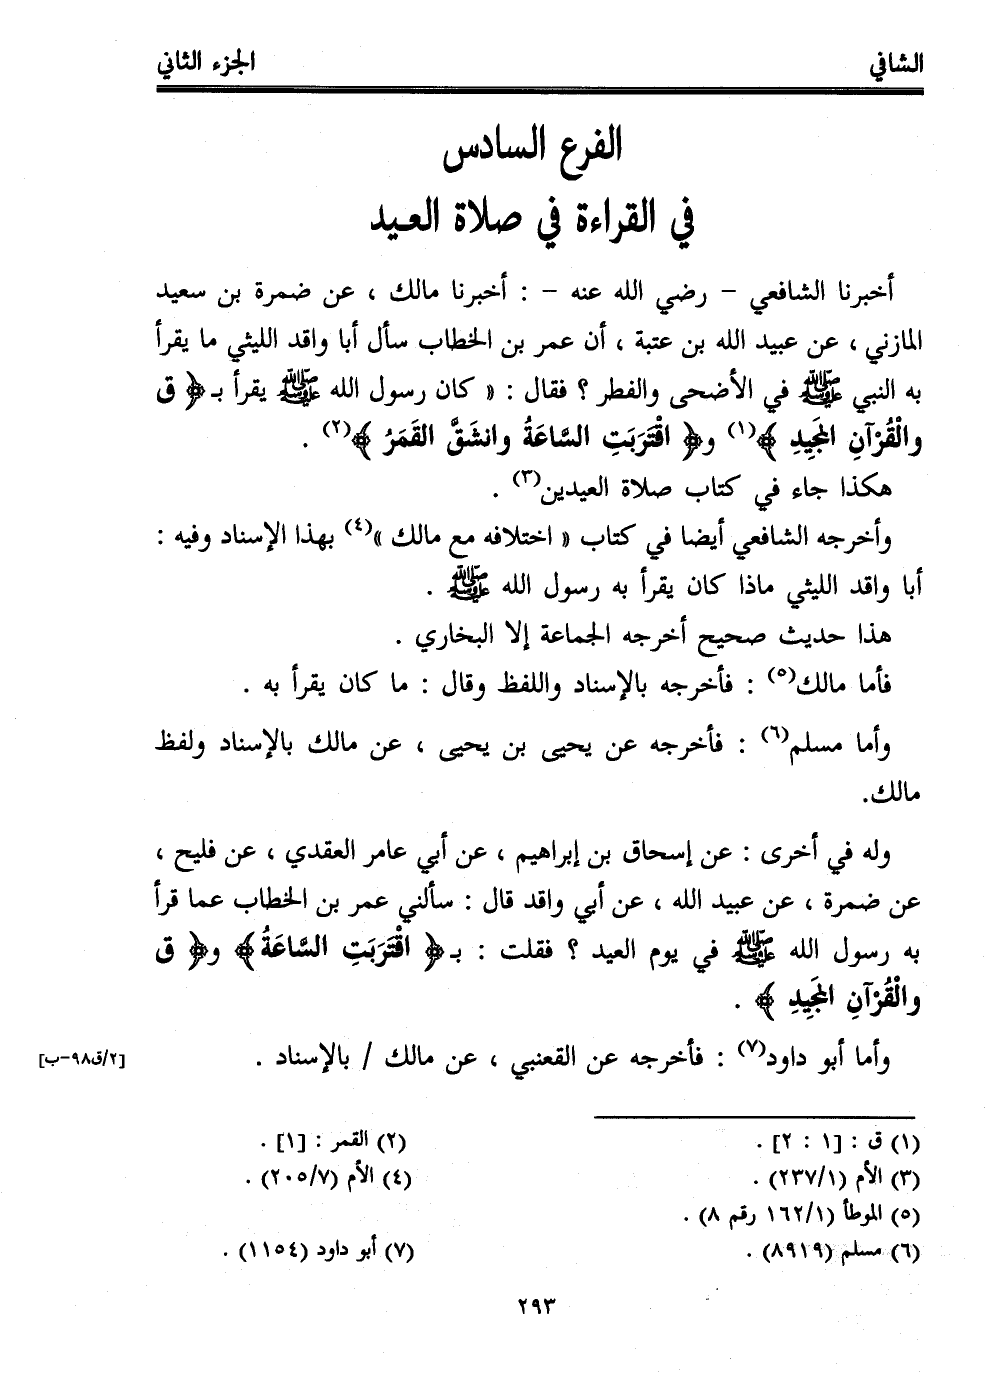 الشافي الجزء الثاني
الفرع السادس
في القراءة في صلاة العيد
أخبرنا الشافعي – رضي الله عنه – : أخبرنا مالك ، عن ضمرة بن سعيد
المازني ، عن عبيد الله بن عتبة ، أن عمر بن الخطاب سأل أبا واقد الليثي ما يقرأ
به النبي ﷺ في الأضحى والفطر ؟ فقال : « كان رسول الله ﷺ يقرأ بـ﴿ ق
والْقُرْآنِ المَجِيدِ ﴾(١) و﴿ اقْتَرَبَتِ السَّاعَةُ وانشَقَّ القَمَرُ ﴾(٢) .
هكذا جاء في كتاب صلاة العيدين(٣) .
وأخرجه الشافعي أيضا في كتاب « اختلافه مع مالك »(٤) بهذا الإسناد وفيه :
أبا واقد الليثي ماذا كان يقرأ به رسول الله ﷺ .
هذا حديث صحيح أخرجه الجماعة إلا البخاري .
فأما مالك(٥) : فأخرجه بالإسناد واللفظ وقال : ما كان يقرأ به .
وأما مسلم(٦) : فأخرجه عن يحيى بن يحيى ، عن مالك بالإسناد ولفظ
مالك.
وله في أخرى : عن إسحاق بن إبراهيم ، عن أبي عامر العقدي ، عن فليح ،
عن ضمرة ، عن عبيد الله ، عن أبي واقد قال : سألني عمر بن الخطاب عما قرأ
به رسول الله ﷺ في يوم العيد ؟ فقلت : بـ﴿ اقْتَرَبَتِ السَّاعَةُ﴾ و﴿ ق
والْقُرْآنِ المَجِيدِ ﴾ .
وأما أبو داود(٧) : فأخرجه عن القعنبي ، عن مالك / بالإسناد . [٢/ق٩٨-ب]
(١) ق : [١ : ٢] . (٢) القمر : [١] .
(٣) الأم (٢٣٧/١) . (٤) الأم (٢٠٥/٧) .
(٥) الموطأ (١٦٢/١ رقم ٨) .
(٦) مسلم (٨٩١٩) . (٧) أبو داود (١١٥٤) .
٢٩٣